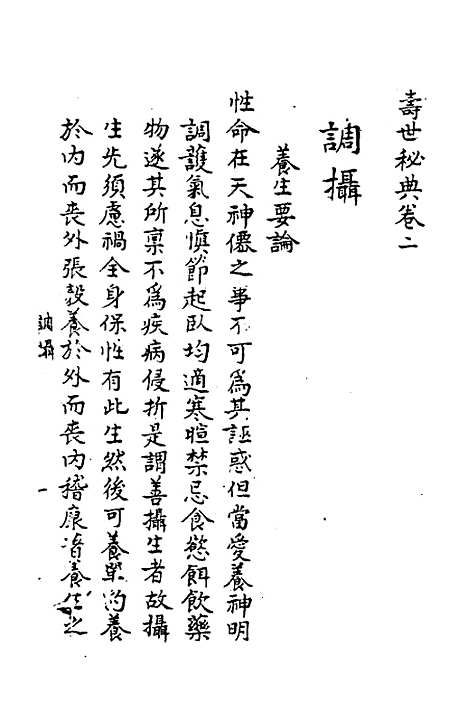 壽世秘典卷二
調攝
養生要論
性命在天神僊之事不可為其誣惑但當愛養神明
調護氣息慎節起臥均適寒暄禁忌食慾餌飲藥
物遂其所稟不為疾病侵折是謂善攝生者故攝
生先須慮禍全身保性有此生然後可養單豹養
於內而喪外張毅養於外而喪內嵇康著養生之
調攝
一